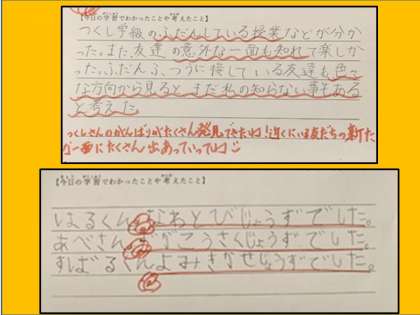 【今日の学習でわかったことや考えたこと】
つくし学級のふだんしている授業などが分か
った。また、友達の意外な一面も知れて楽しか
った。ふだんふつうに接している友達も色々
な方向から見ると、まだ私の知らない事もある
と考えた。
つくしさんのがんばりがたくさん発見できたね！近くにいる友だちの新た
な一面にたくさん出あっていってね
【今日の学習でわかったことや考えたこと】
はるくん、なわとびじょうずでした。
あべさん、がこうさくじょうずでした。
すばるくんよみきかせじょうずでした。